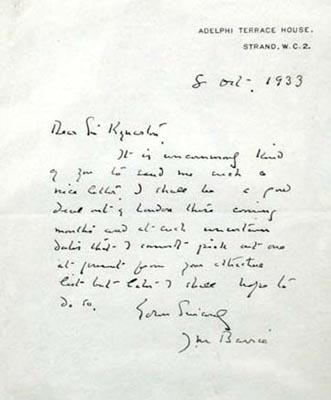 ADELPHI TERRACE HOUSE.
STRAND, W.C.2.
8 Oct. 1933
Dear Sir
It is uncommonly kind
of you to send me such a
nice letter. I shall be a good
deal out of London these coming
months and at such uncertain
dates that I cannot pick out one
at present from your attractive
list but later I shall hope to
do so.
Yours Sincerely
J M Barrie